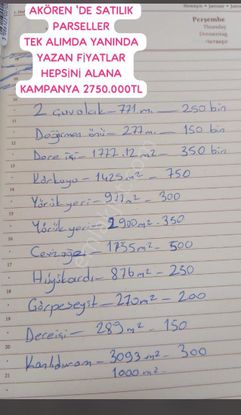 AKÖREN 'DE SATILIK
PARSELLER
TEK ALIMDA YANINDA
YAZAN FİYATLAR
HEPSİNİ ALANA
KAMPANYA 2750.000TL
Perşembe
Thursday
Donnerstag
2 Guvalak - 771 m - 250 bin
Değirmen önü - 277 m - 150 bin
Dere içi - 1777.12 m2 - 350 bin
Karkuyu - 1425 m2 - 750
Yörük yeri - 917 m2 - 300
Yörük yeri - 2900 m2 - 350
Cevizağa - 1735 m2 - 500
Hüyükardı - 876 m2 - 250
Görpeseyit - 270 m2 - 200
Dereiçi - 289 m2 - 150
3093 m2 - 300
1000 m2